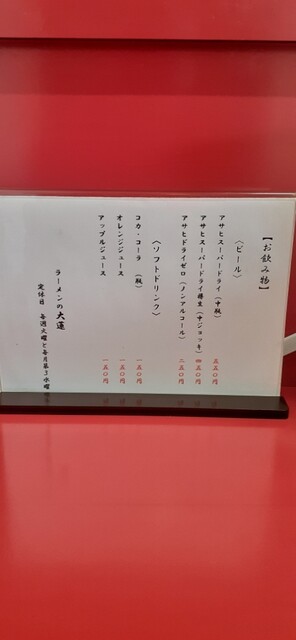 【お飲み物】
〈ビール〉
アサヒスーパードライ（中瓶） 五五〇円
アサヒスーパードライ樽生（中ジョッキ） 四五〇円
アサヒドライゼロ（ノンアルコール） 二五〇円
〈ソフトドリンク〉
コカ・コーラ （瓶） 一五〇円
オレンジジュース 一五〇円
アップルジュース 一五〇円
ラーメンの大蓮
定休日 毎週火曜と毎月第３水曜